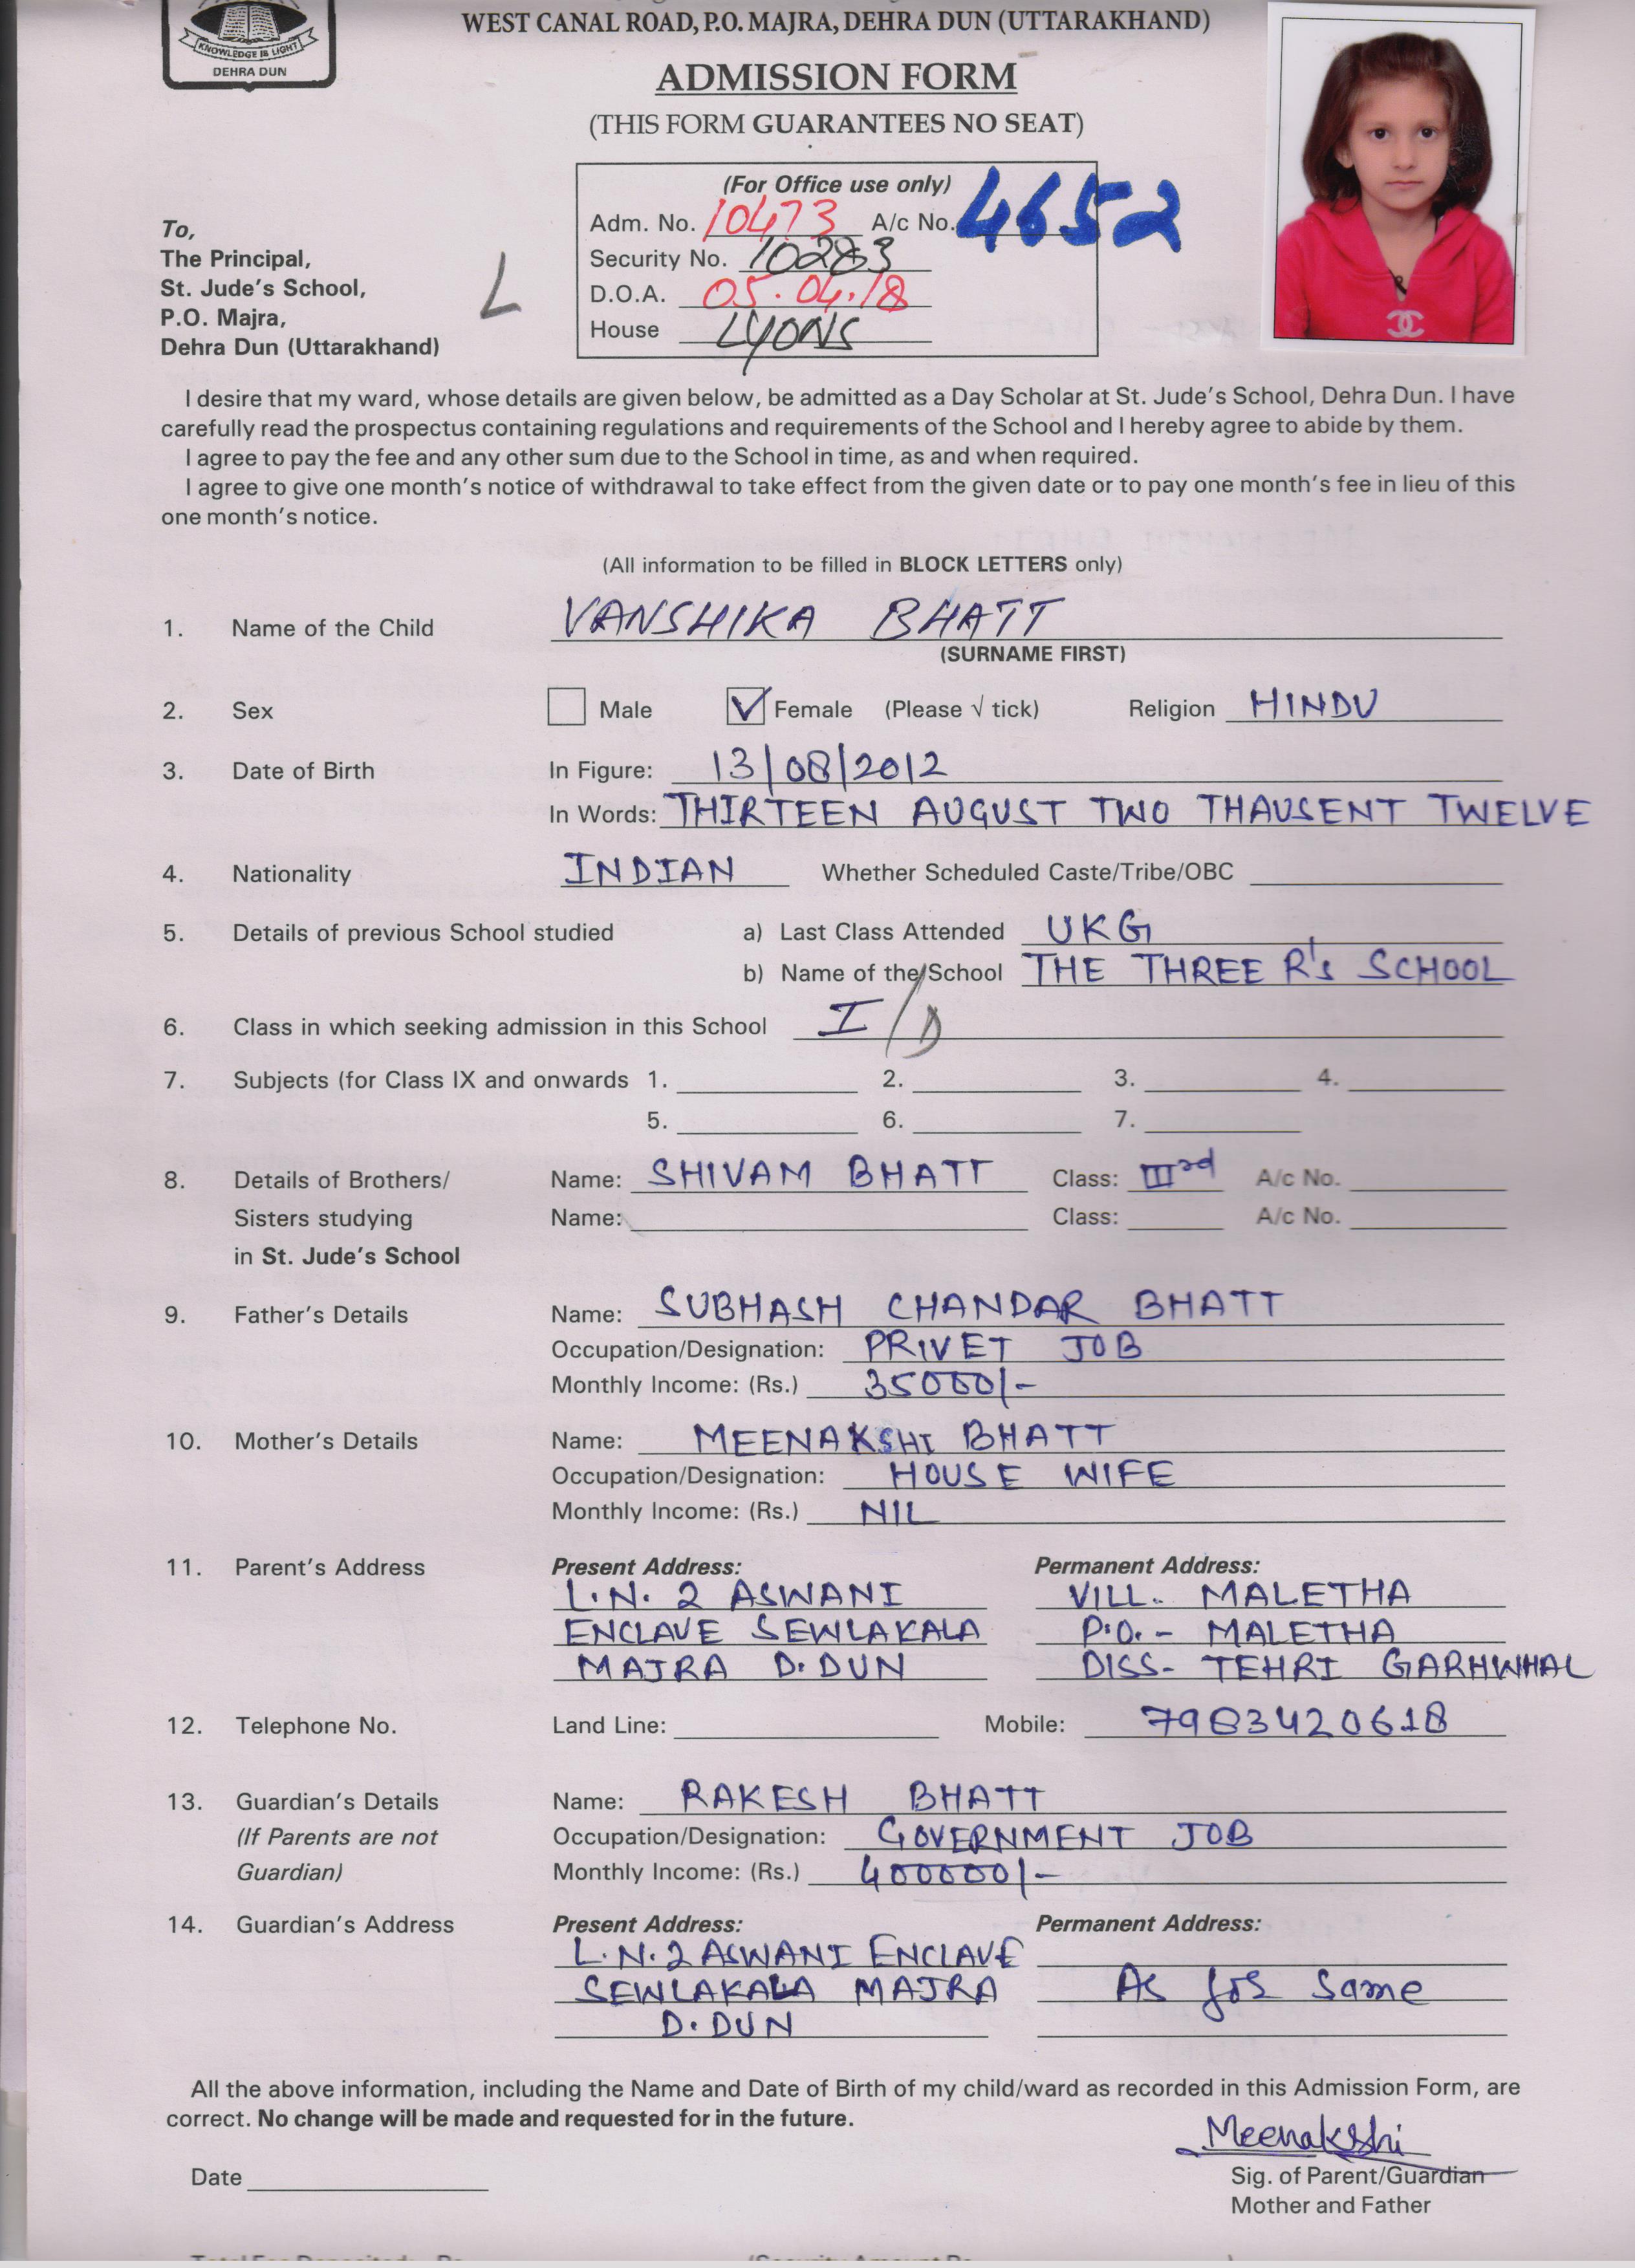 KNOWLEDGE IS LIGHT
DEHRA DUN
WEST CANAL ROAD, P.O. MAJRA, DEHRA DUN (UTTARAKHAND)
ADMISSION FORM
(THIS FORM GUARANTEES NO SEAT)
(For Office use only)
Adm. No. 10473 A/c No. 4652
Security No. 10283
D.O.A. 05.04.18
House LYONS
To,
The Principal,
St. Jude's School,
P.O. Majra,
Dehra Dun (Uttarakhand)
L
I desire that my ward, whose details are given below, be admitted as a Day Scholar at St. Jude's School, Dehra Dun. I have
carefully read the prospectus containing regulations and requirements of the School and I hereby agree to abide by them.
I agree to pay the fee and any other sum due to the School in time, as and when required.
I agree to give one month's notice of withdrawal to take effect from the given date or to pay one month's fee in lieu of this
one month's notice.
(All information to be filled in BLOCK LETTERS only)
1. Name of the Child VANSHIKA BHATT
(SURNAME FIRST)
2. Sex Male Female (Please √ tick) Religion HINDU
3. Date of Birth In Figure: 13/08/2012
In Words: THIRTEEN AUGUST TWO THAUSENT TWELVE
4. Nationality INDIAN Whether Scheduled Caste/Tribe/OBC
5. Details of previous School studied a) Last Class Attended UKG
b) Name of the School THE THREE R's SCHOOL
6. Class in which seeking admission in this School I/D
7. Subjects (for Class IX and onwards 1. 2. 3. 4.
5. 6. 7.
8. Details of Brothers/ Name: SHIVAM BHATT Class: IIIrd A/c No.
Sisters studying Name: Class: A/c No.
in St. Jude's School
9. Father's Details Name: SUBHASH CHANDAR BHATT
Occupation/Designation: PRIVET JOB
Monthly Income: (Rs.) 35000/-
10. Mother's Details Name: MEENAKSHI BHATT
Occupation/Designation: HOUSE WIFE
Monthly Income: (Rs.) NIL
11. Parent's Address Present Address: Permanent Address:
L.N. 2 ASWANI VILL. MALETHA
ENCLAVE SEWLAKALA P.O. - MALETHA
MAJRA D.DUN DISS- TEHRI GARHWHAL
12. Telephone No. Land Line: Mobile: 7983420618
13. Guardian's Details Name: RAKESH BHATT
(If Parents are not Occupation/Designation: GOVERNMENT JOB
Guardian) Monthly Income: (Rs.) 400000/-
14. Guardian's Address Present Address: Permanent Address:
L.N.2 ASWANI ENCLAVE
SEWLAKALA MAJRA As for same
D.DUN
All the above information, including the Name and Date of Birth of my child/ward as recorded in this Admission Form, are
correct. No change will be made and requested for in the future.
Meenakshi
Date Sig. of Parent/Guardian
Mother and Father